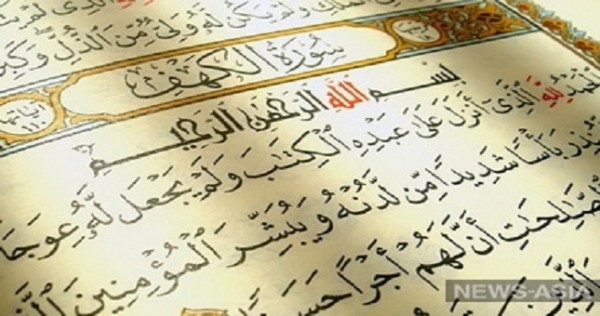 ٱلَّذِى لَمْ
وَلَمْ يَكُن لَّهُۥ وَلِىٌّ مِّنَ ٱلذُّلِّ وَكَبِّ
سُورَةُ الْكَهْفِ
بِسْمِ اللَّهِ الرَّحْمَٰنِ الرَّحِيمِ
ٱلْحَمْدُ لِلَّهِ ٱلَّذِىٓ أَنزَلَ عَلَىٰ عَبْدِهِ ٱلْكِتَٰبَ وَلَمْ يَجْعَل لَّهُۥ عِوَجَا
يُنذِرَ بَأْسًا شَدِيدًا مِّن لَّدُنْهُ وَيُبَشِّرَ ٱلْمُؤْمِنِينَ
ٱلصَّٰلِحَٰتِ أَنَّ لَهُمْ أَجْرًا حَسَنًا
ٱلَّذِينَ
NEWS-ASIA